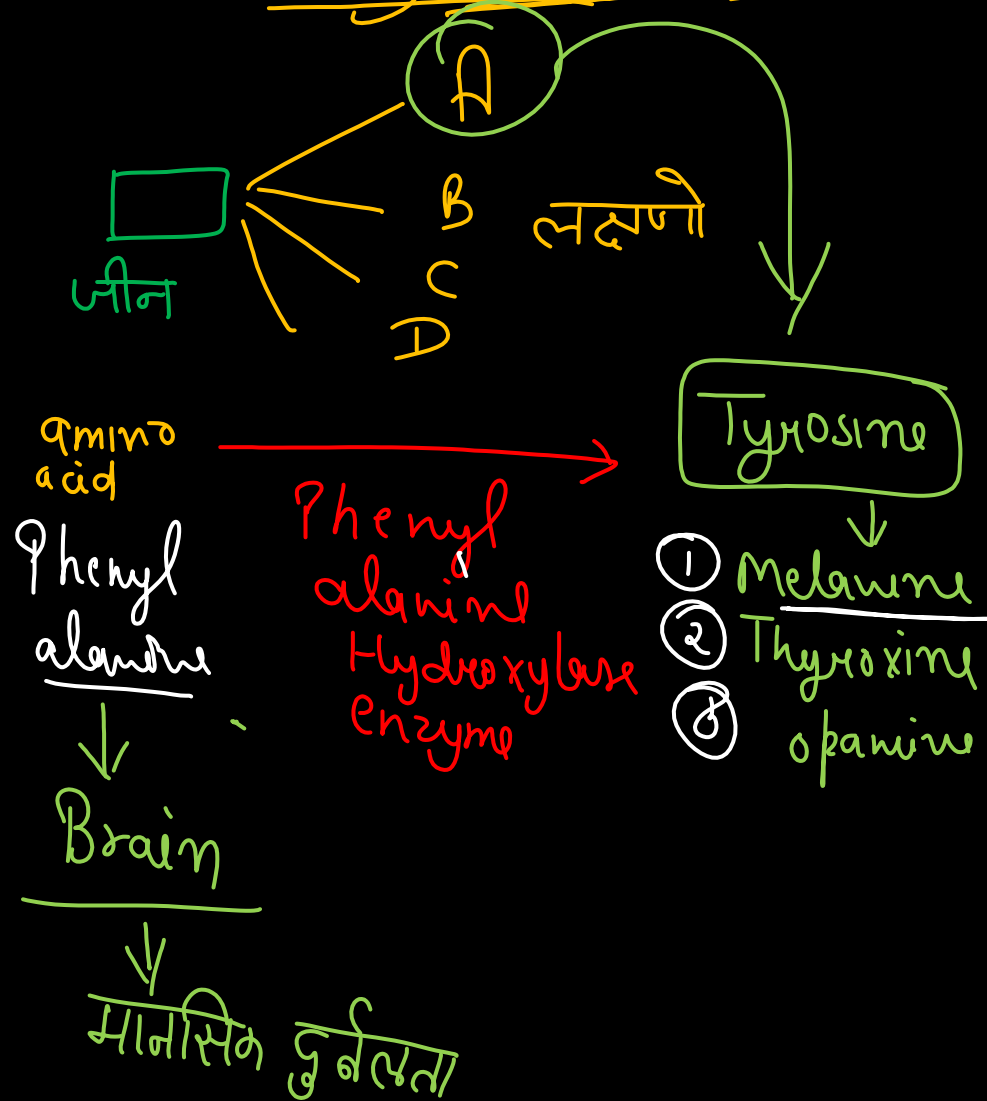 A
B
लक्षणो
C
D
जीन
amino
acid
Phenyl
alanine
Phenyl
alanine
Hydroxylase
enzyme
Tyrosine
1 Melanine
2 Thyroxine
3 opamine
Brain
मानसिक दुर्बलता